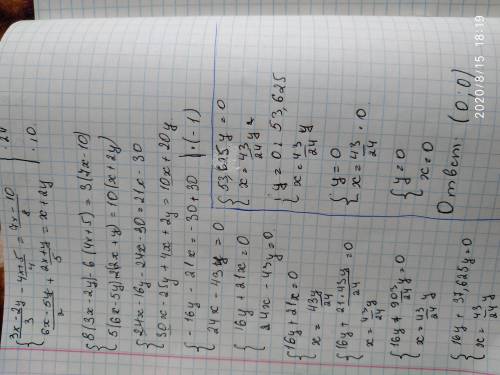 { (3x-2y)/3 - (4x+5)/4 = (7x-10)/8 | ·24
(6x-5y)/2 + (2x+y)/5 = x+2y | ·10
{ 8(3x-2y)-6(4x+5)=3(7x-10)
5(6x-5y)+2(2x+y)=10(x+2y)
{ 24x-16y-24x-30=21x-30
30x-25y+4x+2y=10x+20y
{ -16y-21x=-30+30 | :(-1)
24x-43y=0
{ 16y+21x=0
24x-43y=0
{ 16y+21x=0
x=43y/24
{ 16y+21·43y/24=0
x=43/24 y
{ 16y+903/24 y=0
x=43/24 y
{ 16y+37,625y=0
x=43/24 y
{ 53,625y=0
x=43/24 y
{ y=0:53,625
x=43/24 y
{ y=0
x=43/24·0
{ y=0
x=0
Ответ: (0;0)
2020/8/15 18:19